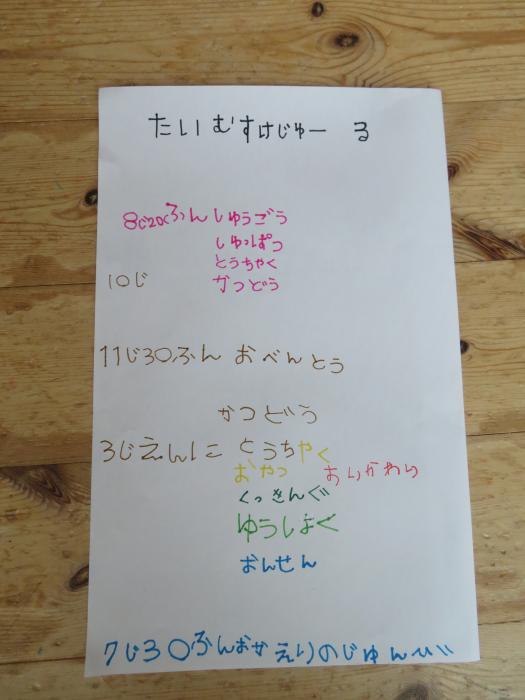 たいむすけじゅーる
8じ20ふんしゅうごう
しゅっぱつ
とうちゃく
10じ かつどう
11じ30ふん おべんとう
かつどう
3じえんに とうちゃく
おやつ おりかわり
くっきんぐ
ゆうしょく
おんせん
7じ30ふんおかえりのじゅんび